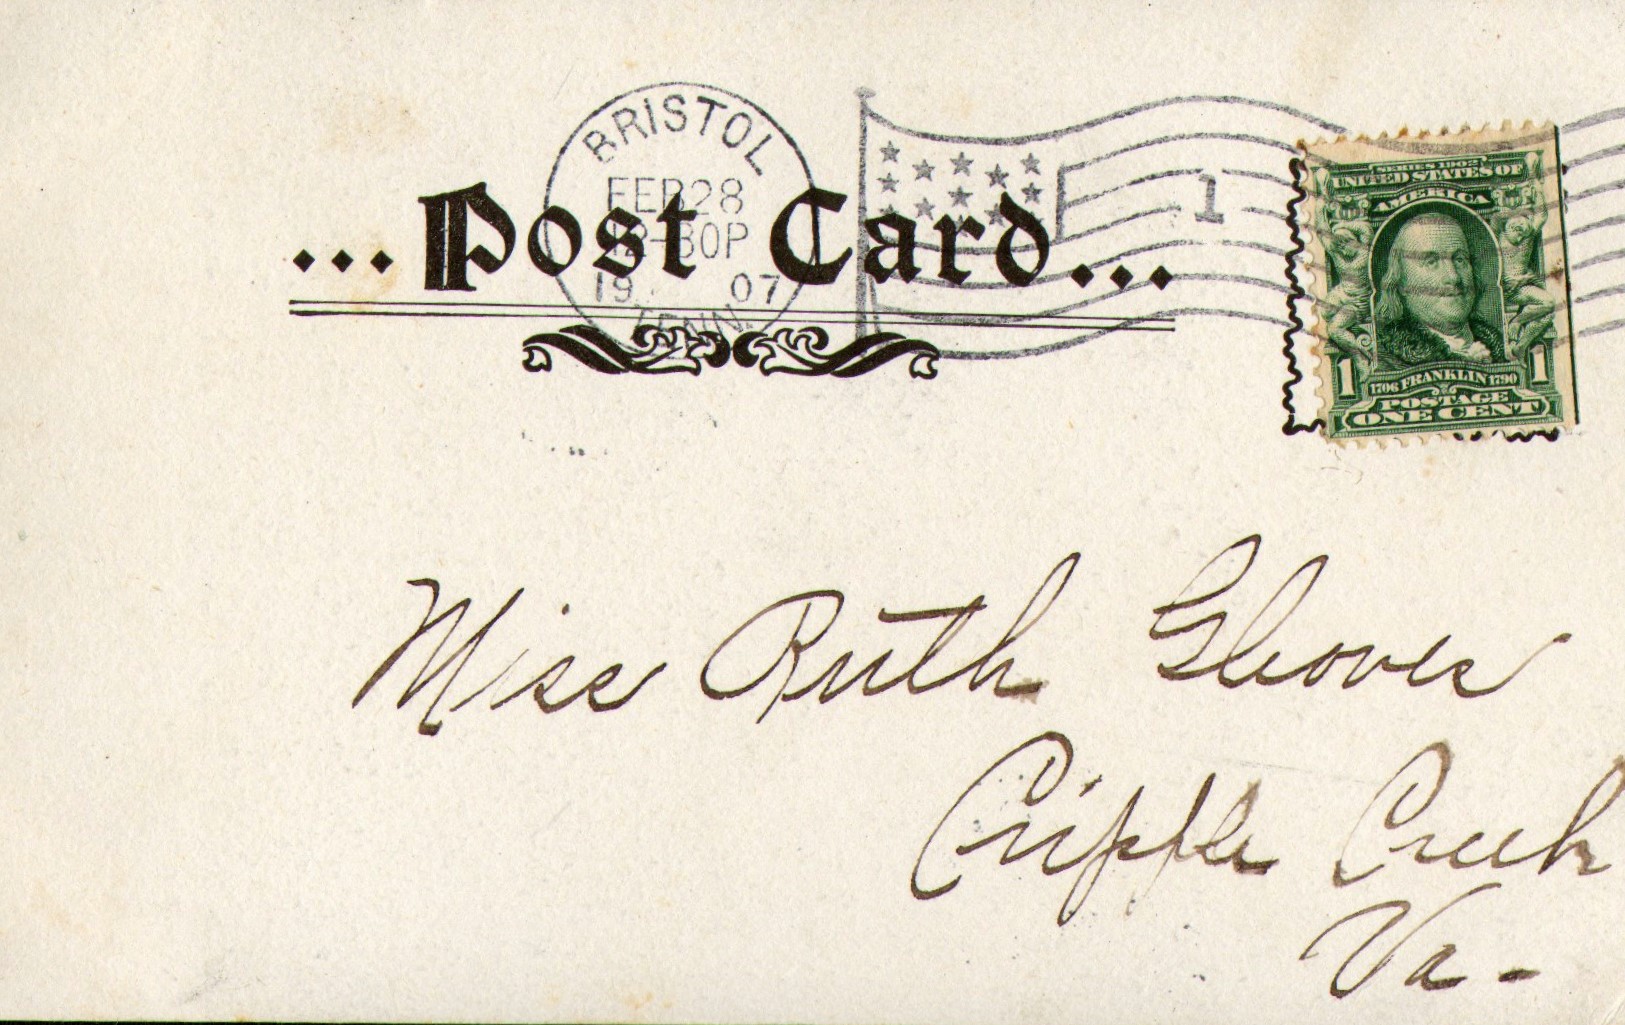 BRISTOL
FEB 28
12-30P
19 07
TENN.
1
...Post Card...
SERIES 1902
UNITED STATES OF
AMERICA
1 1
1706 FRANKLIN 1790
POSTAGE
ONE CENT
Miss Ruth
Cripple Creek
Va.